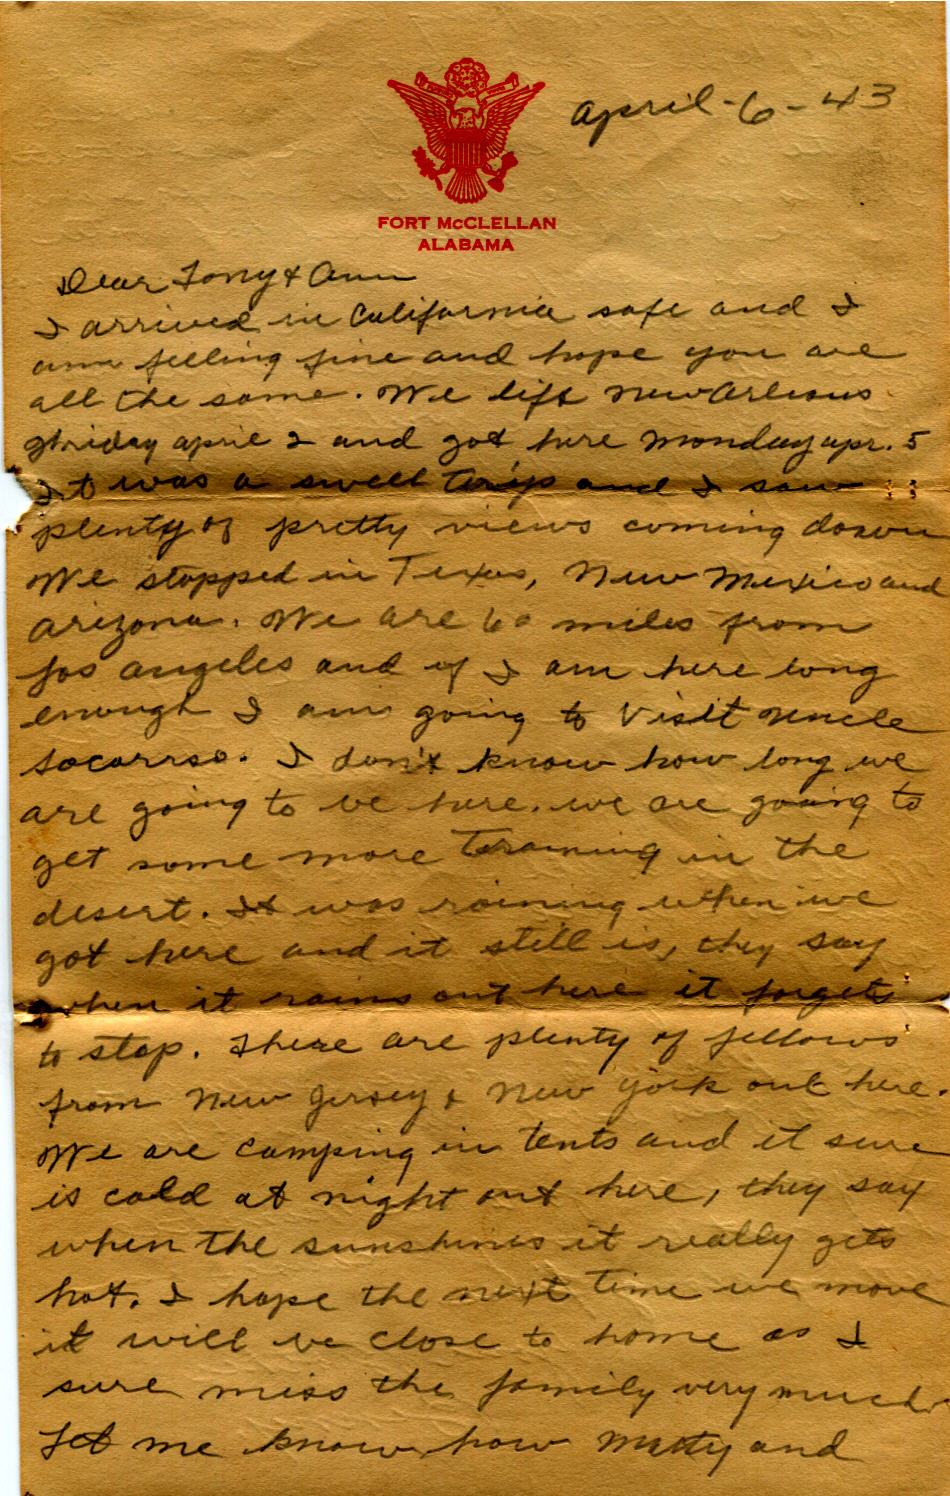 april-6-43
FORT McCLELLAN
ALABAMA
Dear Tony & Ann
I arrived in California safe and I
am feeling fine and hope you are
all the same. We left New Orleans
friday april 2 and got here monday apr. 5
It was a swell trip and I saw
plenty of pretty views coming down
We stopped in Texas, New Mexico and
arizona. We are 60 miles from
Los angeles and if I am here long
enough I am going to Visit uncle
Socorrso. I don't know how long we
are going to be here. we are going to
get some more Training in the
desert. It was raining when we
got here and it still is, they say
when it rains out here it forgets
to stop. There are plenty of fellows
from New Jersey & New york out here.
We are camping in tents and it sure
is cold at night out here, they say
when the sunshines it really gets
hot. I hope the next time we move
it will be close to home as I
sure miss the family very much.
Let me know how Matty and